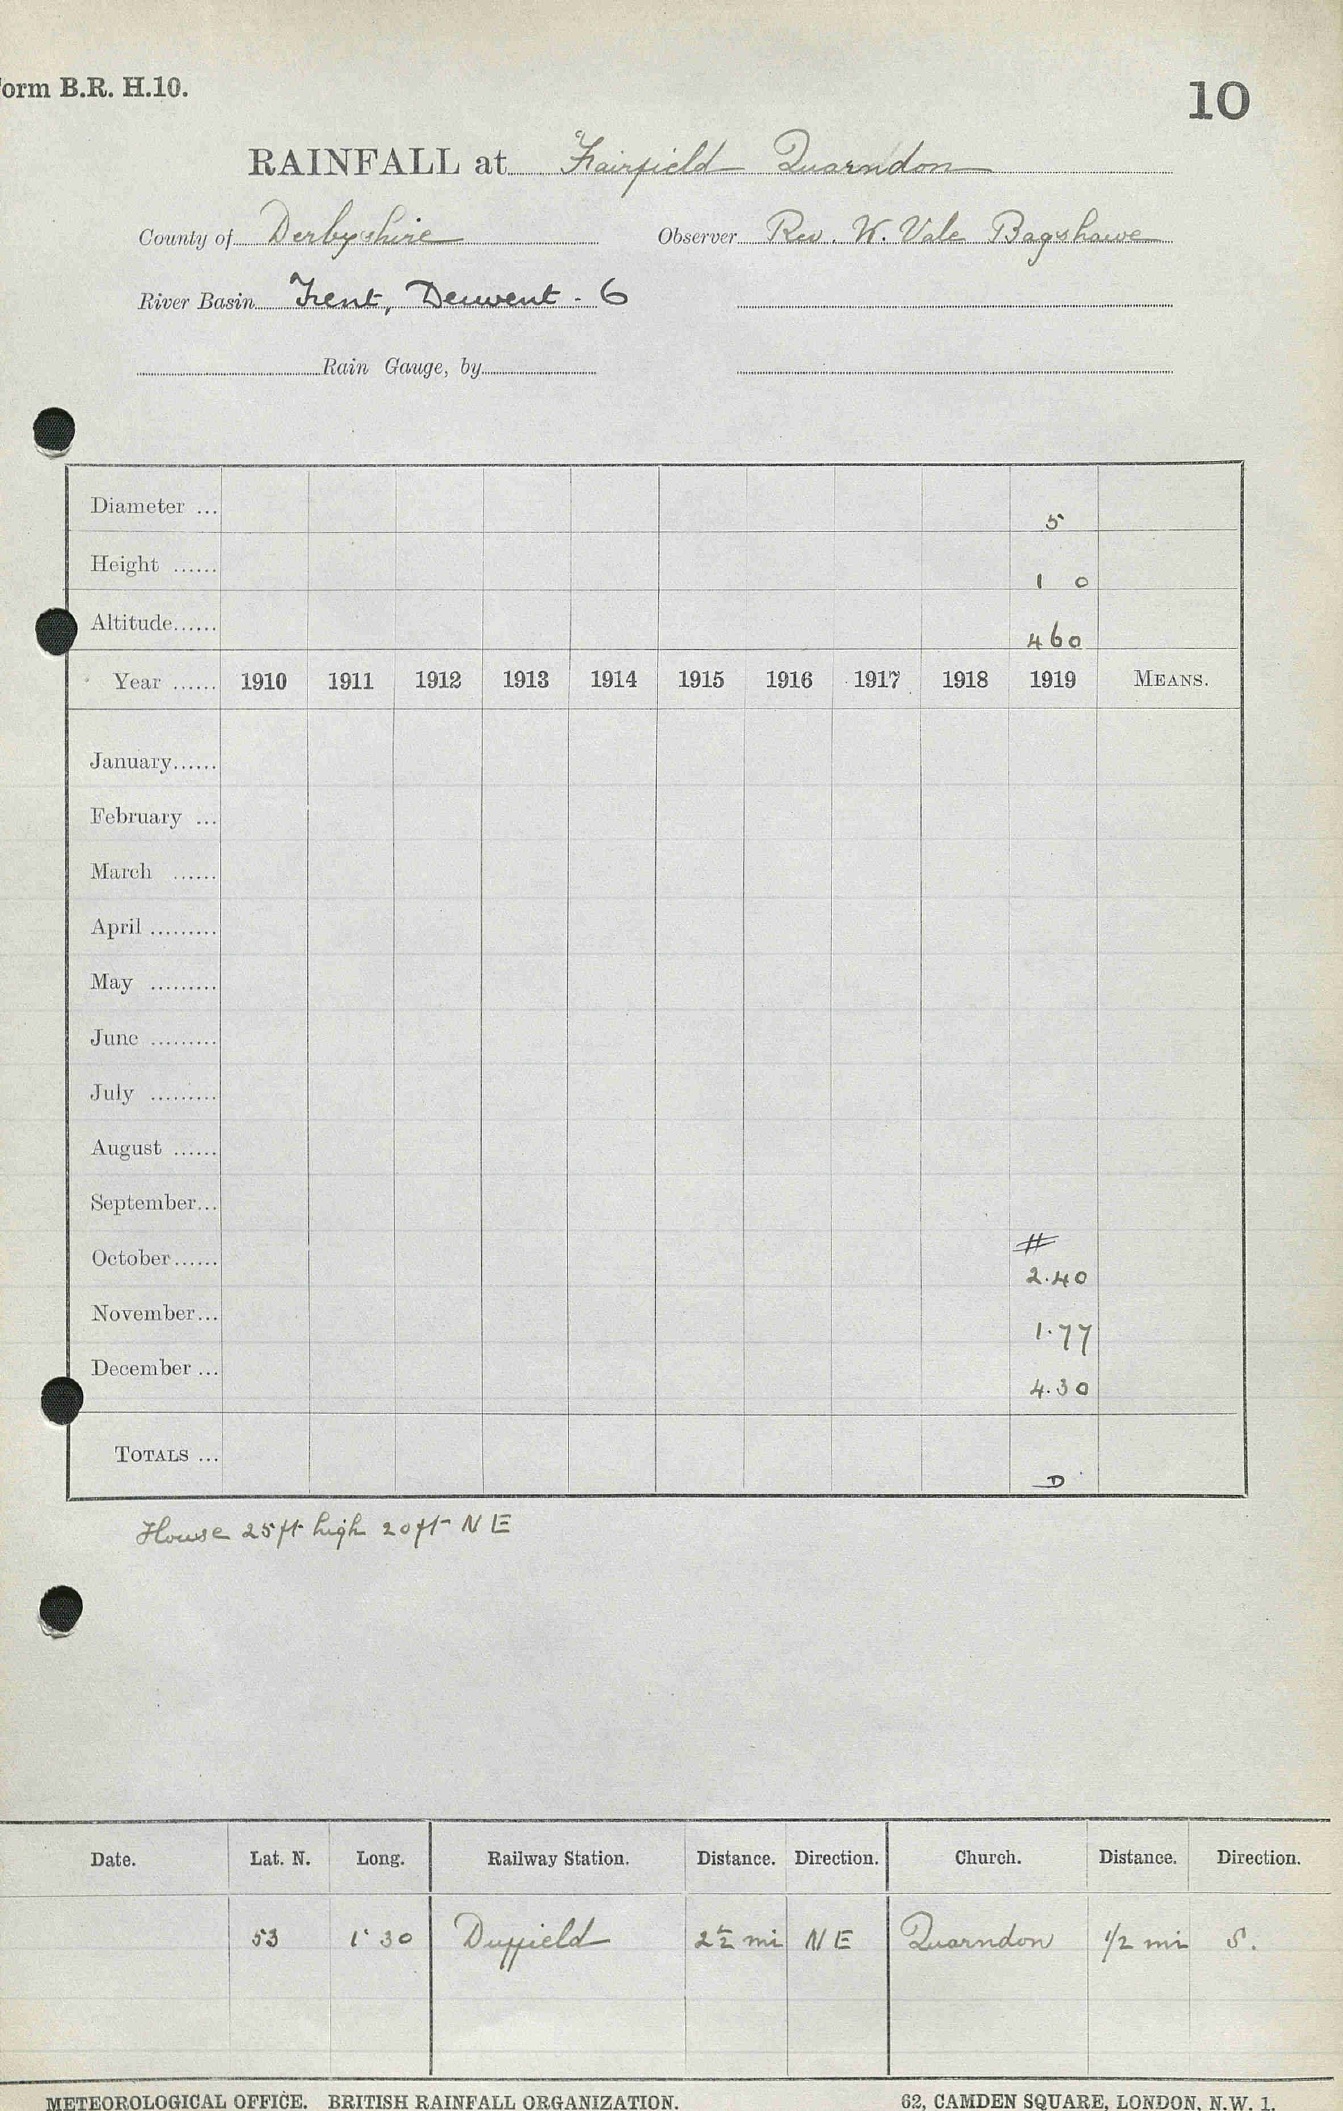 orm B.R. H.10.
10
RAINFALL at Fairfield Quarndon
County of Derbyshire Observer Rev. W. Vale Bagshawe
River Basin Trent, Derwent - 6
Rain Gauge, by
Diameter ... 5
Height ...... 1 0
Altitude...... 460
Year ...... 1910 1911 1912 1913 1914 1915 1916 1917 1918 1919 MEANS.
January......
February ...
March ......
April .........
May .........
June .........
July .........
August ......
September...
October...... # 2.40
November... 1.77
December ... 4.30
TOTALS ... D
House 25ft high 20ft N E
Date. Lat. N. Long. Railway Station. Distance. Direction. Church. Distance. Direction.
53 1° 30 Duffield 2½ mi N E Quarndon 1/2 mi S.
METEOROLOGICAL OFFICE. BRITISH RAINFALL ORGANIZATION. 62, CAMDEN SQUARE, LONDON, N.W. 1.